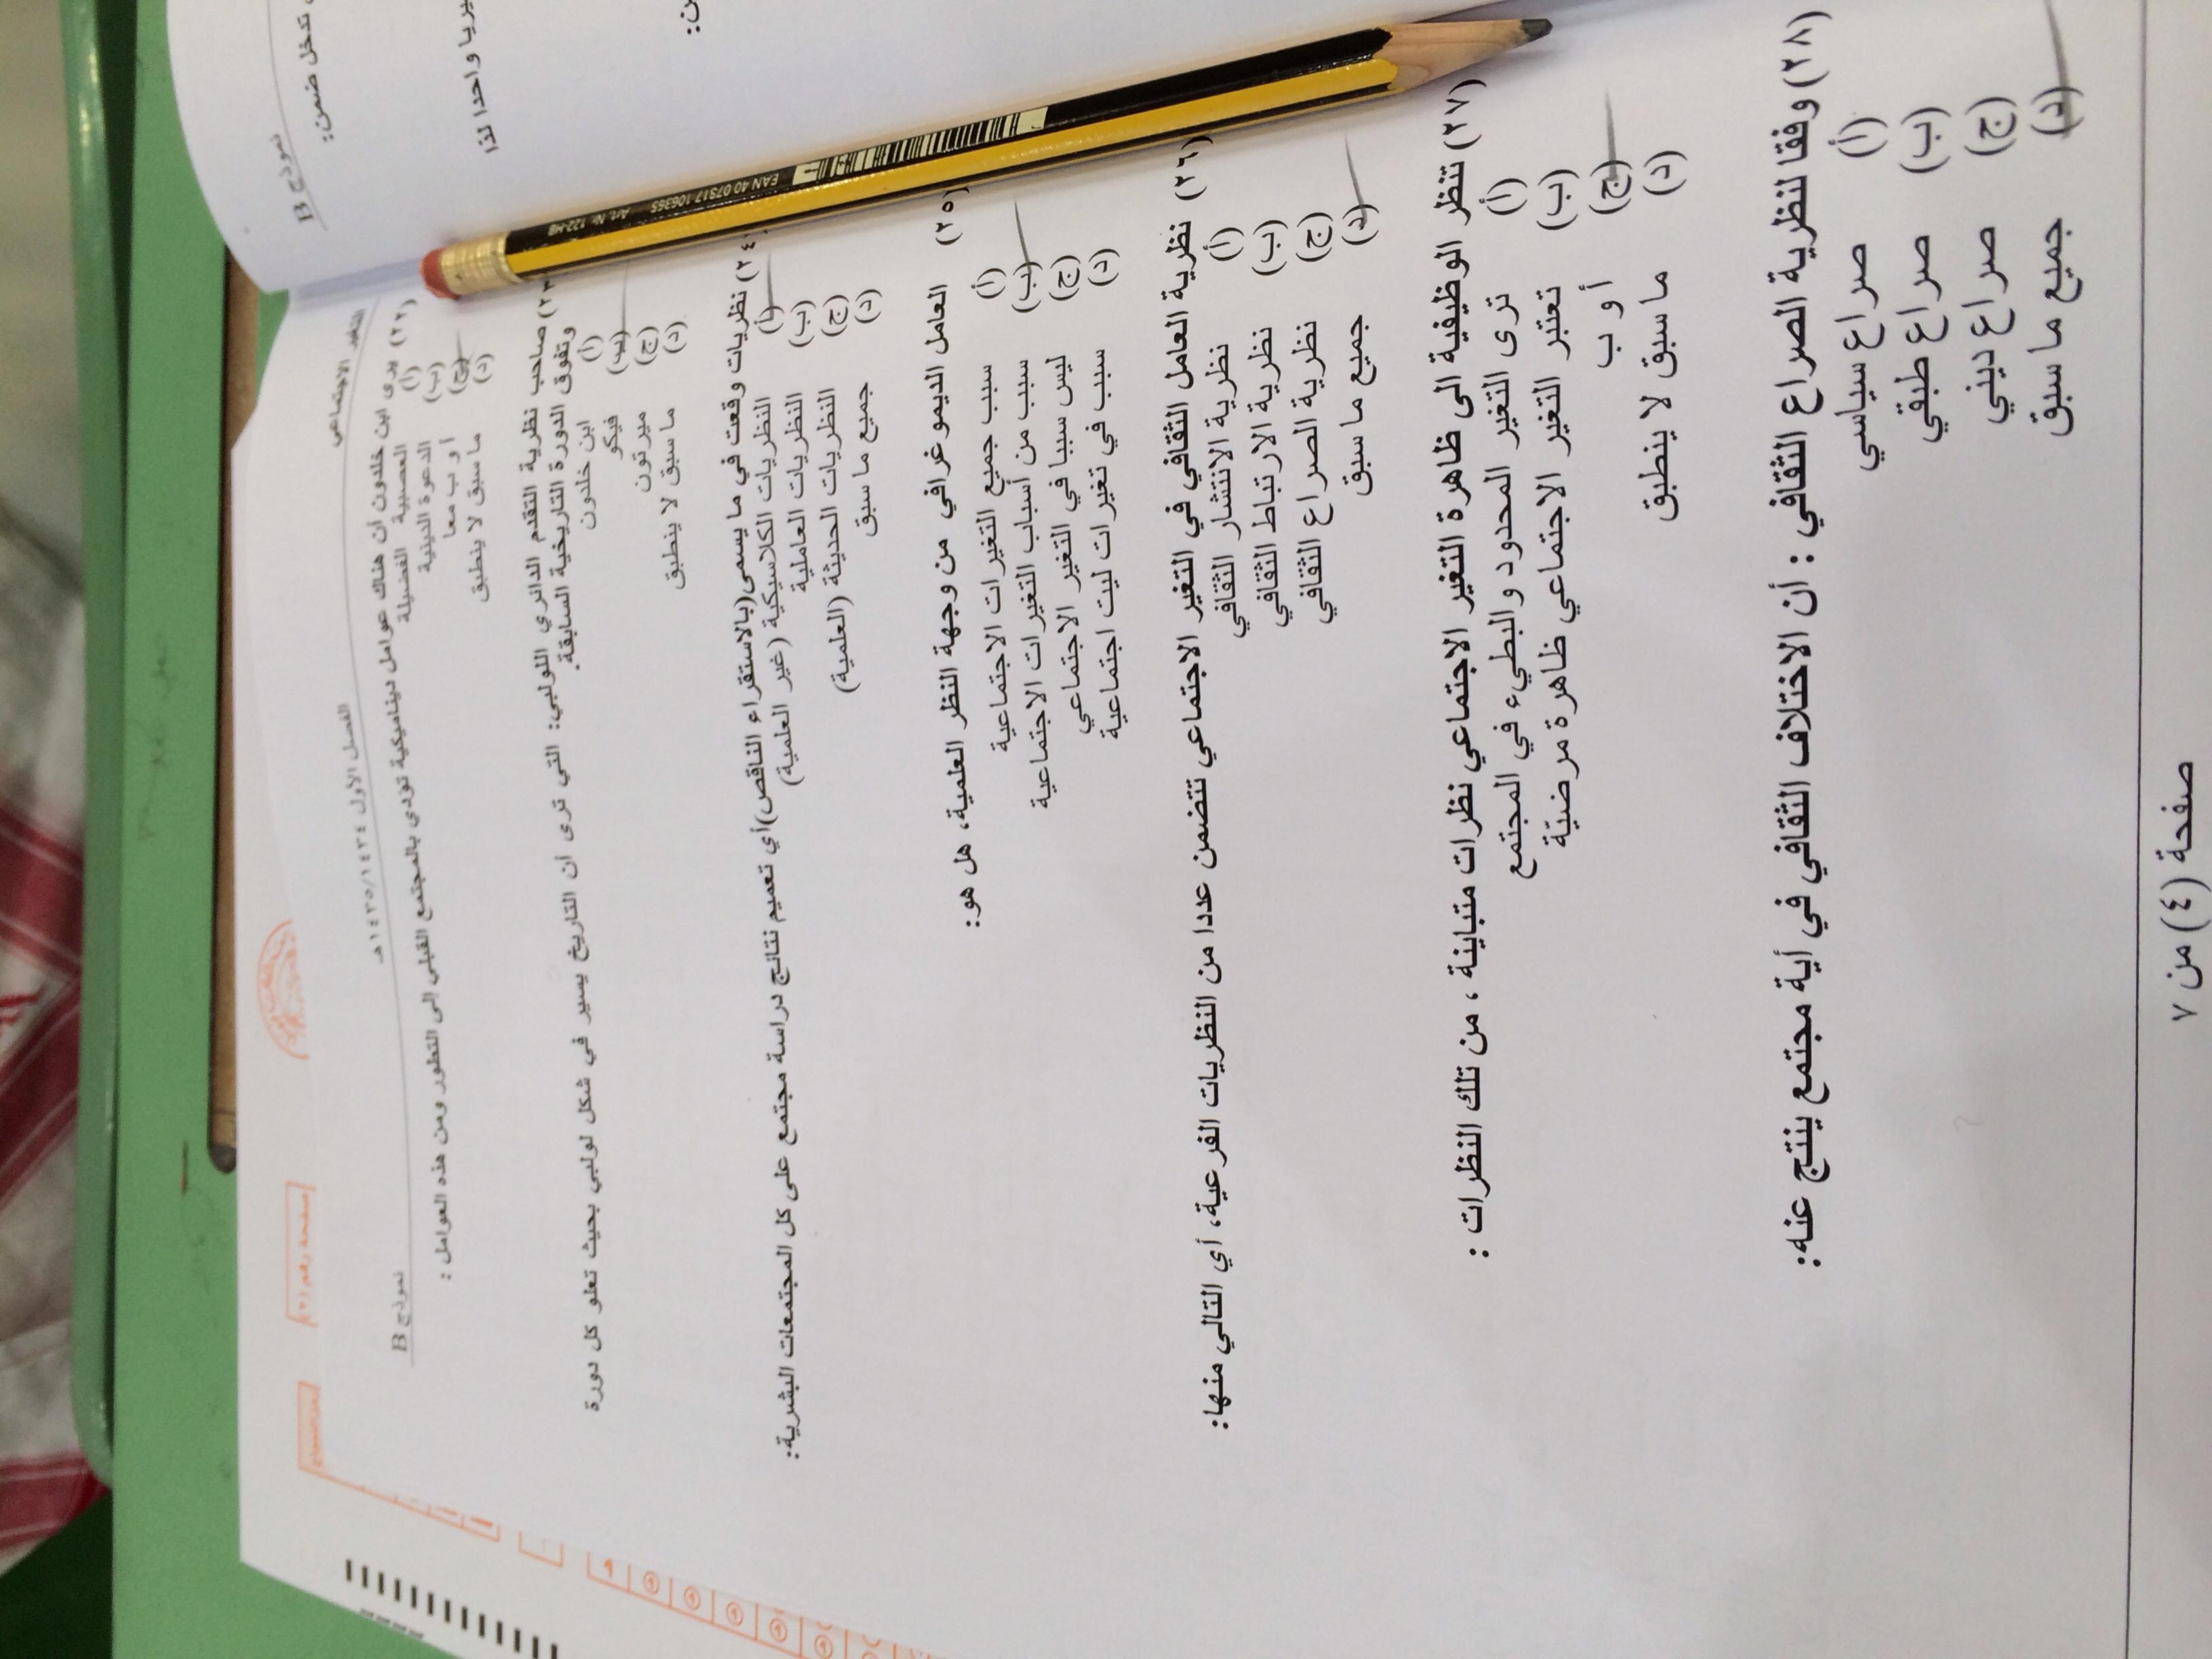 التغير الاجتماعي
الفصل الأول ١٤٣٥/١٤٣٤هـ
نموذج B
(٢٢) يرى ابن خلدون أن هناك عوامل ديناميكية تؤدي بالمجتمع القبلي إلى التطور ومن هذه العوامل :
(أ) العصبية الفضيلة
(ب) الدعوة الدينية
(ج) أ و ب معا
(د) ما سبق لا ينطبق
صاحب نظرية التقدم الدائري اللولبي: التي ترى أن التاريخ يسير في شكل لولبي بحيث تعلو كل دورة
وتفوق الدورة التاريخية السابقة.
(أ) ابن خلدون
(ب) فيكو
(ج) ميرتون
(د) ما سبق لا ينطبق
نظريات وقعت في ما يسمى(بالاستقراء الناقص)أي تعميم نتائج دراسة مجتمع على كل المجتمعات البشرية:
(أ) النظريات الكلاسيكية (غير العلمية)
(ب) النظريات العاملية
(ج) النظريات الحديثة (العلمية)
(د) جميع ما سبق
(٢٥) العامل الديموغرافي من وجهة النظر العلمية، هل هو:
(أ) سبب جميع التغيرات الاجتماعية
(ب) سبب من أسباب التغيرات الاجتماعية
(ج) ليس سببا في التغير الاجتماعي
(د) سبب في تغيرات ليت اجتماعية
(٢٦) نظرية العامل الثقافي في التغير الاجتماعي تتضمن عددا من النظريات الفرعية، أي التالي منها:
(أ) نظرية الانتشار الثقافي
(ب) نظرية الارتباط الثقافي
(ج) نظرية الصراع الثقافي
(د) جميع ما سبق
(٢٧) تنظر الوظيفية الى ظاهرة التغير الاجتماعي نظرات متباينة ، من تلك النظرات :
(أ) ترى التغير المحدود والبطيء في المجتمع
(ب) تعتبر التغير الاجتماعي ظاهرة مرضيّة
(ج) أ و ب
(د) ما سبق لا ينطبق
(٢٨) وفقا لنظرية الصراع الثقافي : أن الاختلاف الثقافي في أية مجتمع ينتج عنه:
(أ) صراع سياسي
(ب) صراع طبقي
(ج) صراع ديني
(د) جميع ما سبق
صفحة (٤) من ٧
نموذج B
تدخل ضمن:
واحدا لذا
EAN 40 07817 106365
Art. Nr. 122-HB